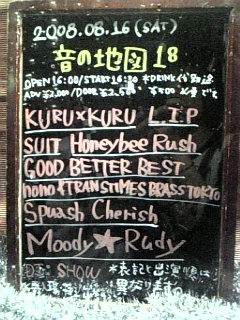 2008.08.16 (SAT)
音の地図 18
OPEN 16:00/START 16:30 *DRINK代別途
ADV ¥2,000/DOOR ¥2,500
KURU×KURU L.I.P
SUIT Honeybee Rush
GOOD BETTER BEST
nono & TRANSTIMES BRASS TOKYO
Spuash Cherish
Moody★Rudy
SHOW *表記と出演順は
異なります